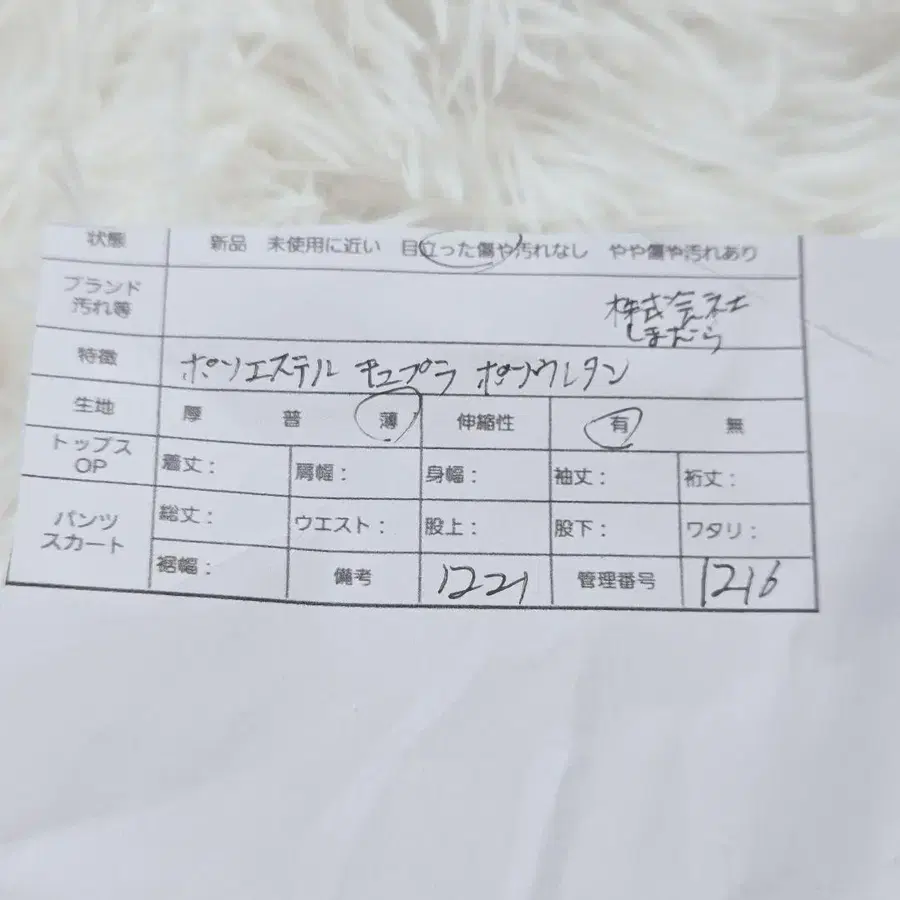 状態 新品 未使用に近い 目立った傷や汚れなし やや傷や汚れあり
ブランド
汚れ等
株式会社
しまむら
特徴 ポリエステル キュプラ ポリウレタン
生地 厚 普 薄 伸縮性 有 無
トップス
OP
着丈: 肩幅: 身幅: 袖丈: 裄丈:
パンツ
スカート
総丈: ウエスト: 股上: 股下: ワタリ:
裾幅: 備考 1221 管理番号 1216